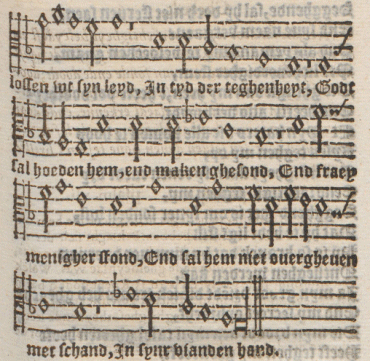 lossen wt syn leyd, In tyd der teghenheyt, Godt
sal hoeden hem, end maken ghesond, End fraey
menigher stond, End sal hem niet ouergheuen
met schand, In syner vianden hand.